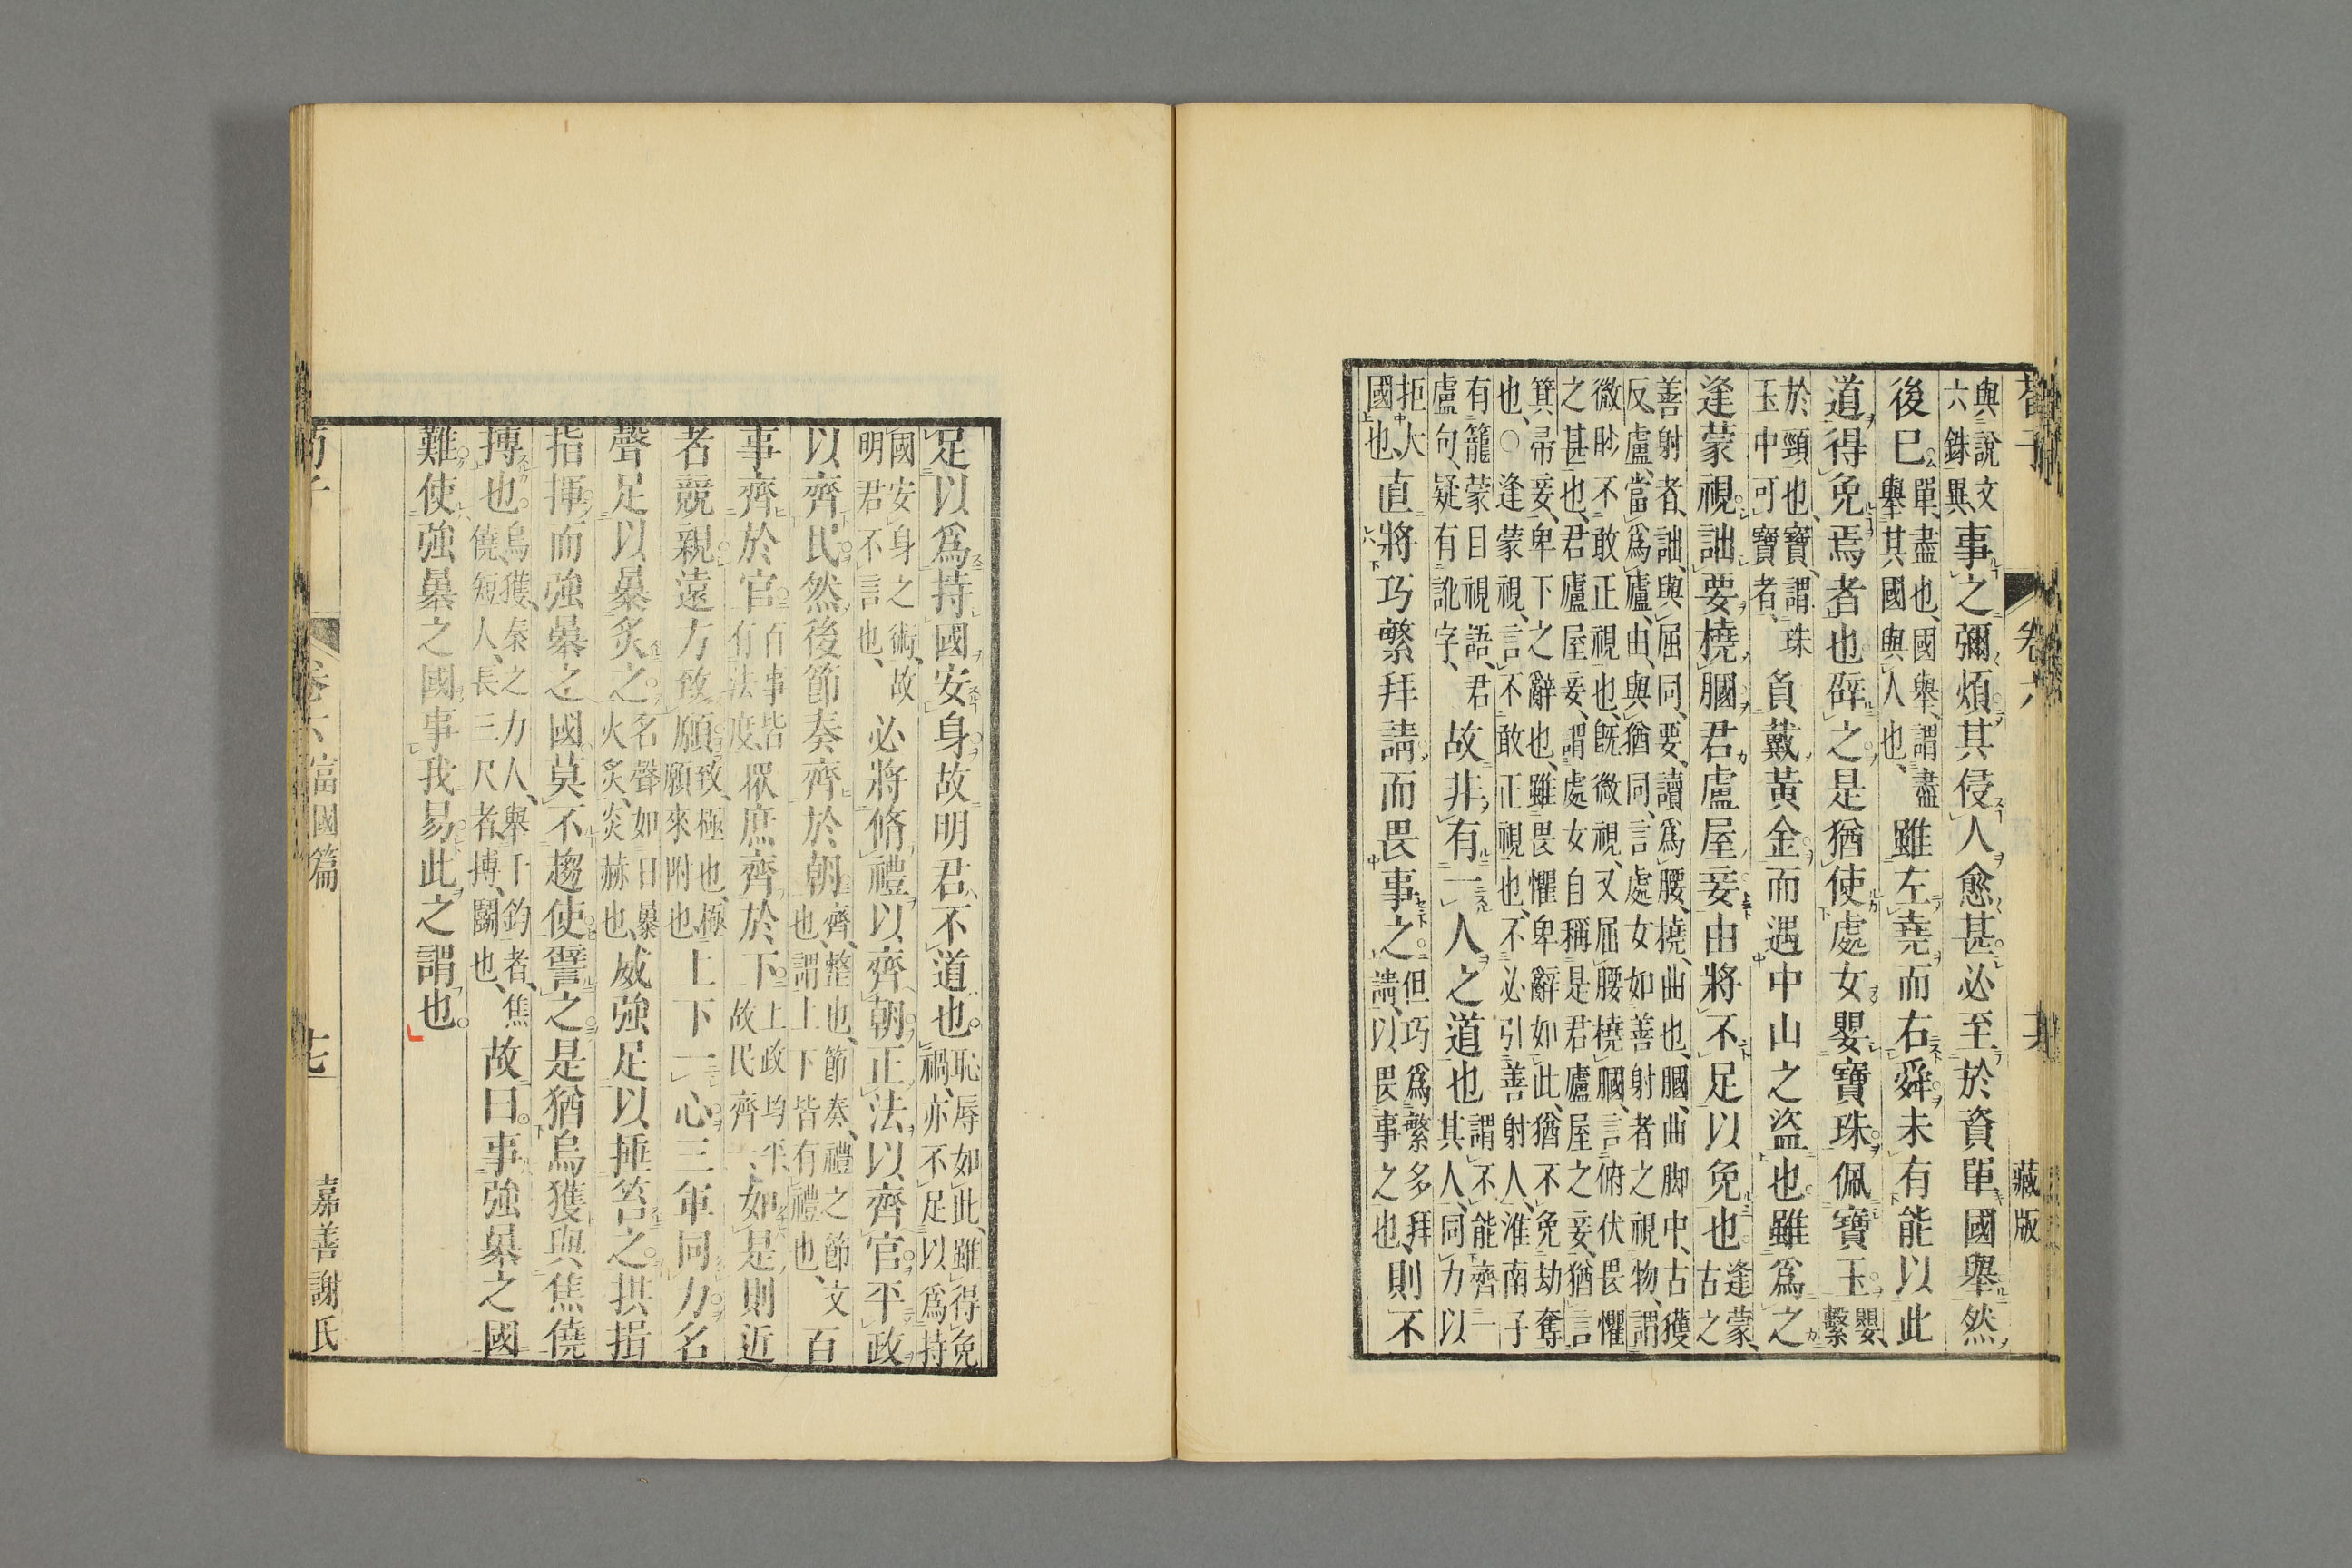 與說文
六銖異事之彌煩其侵人愈甚必至於資單國舉然
後已單盡也國舉謂盡
舉其國與人也雖左堯而右舜未有能以此
道得免焉者也辟之是猶使處女嬰寶珠佩寶玉嬰
繫
於頸也寶謂珠
玉中可寶者負戴黃金而遇中山之盜也雖爲之
逢蒙視詘要橈膕君盧屋妾由將不足以免也逢蒙
古之
善射者詘與屈同要讀爲腰橈曲也膕曲脚中古獲
反盧當爲廬由與猶同言處女如善射者之視物謂
微眇不敢正視也旣微視又屈腰橈膕言俯伏畏懼
之甚也君盧屋妾謂處女自稱是君廬屋之妾猶言
箕帚妾卑下之辭也雖畏懼卑辭如此猶不免劫奪
也○逢蒙視言不敢正視也不必引善射人淮南子
有籠蒙目視語君
盧句疑有訛字故非有一人之道也謂不能齊一
其人同力以
拒大
國也直將巧繁拜請而畏事之但巧爲繁多拜
請以畏事之也則不
足以爲持國安身故明君不道也恥辱如此雖得免
禍亦不足以爲持
國安身之術故
明君不言也必將脩禮以齊朝正法以齊官平政
以齊民然後節奏齊於朝齊整也節奏禮之節文
也謂上下皆有禮也百
事齊於官百事皆
有法度眾庶齊於下上政均平
故民齊一如是則近
者競親遠方致願致極也極
願來附也上下一心三軍同力名
聲足以暴炙之名聲如日暴
火炙炎赫也威強足以捶笞之拱揖
指揮而強暴之國莫不趨使譬之是猶烏獲與焦僥
搏也烏獲秦之力人舉千鈞者焦
僥短人長三尺者搏鬭也故曰事強暴之國
難使強暴之國事我易此之謂也
卷六
藏版
卷六富國篇
十七
嘉善謝氏